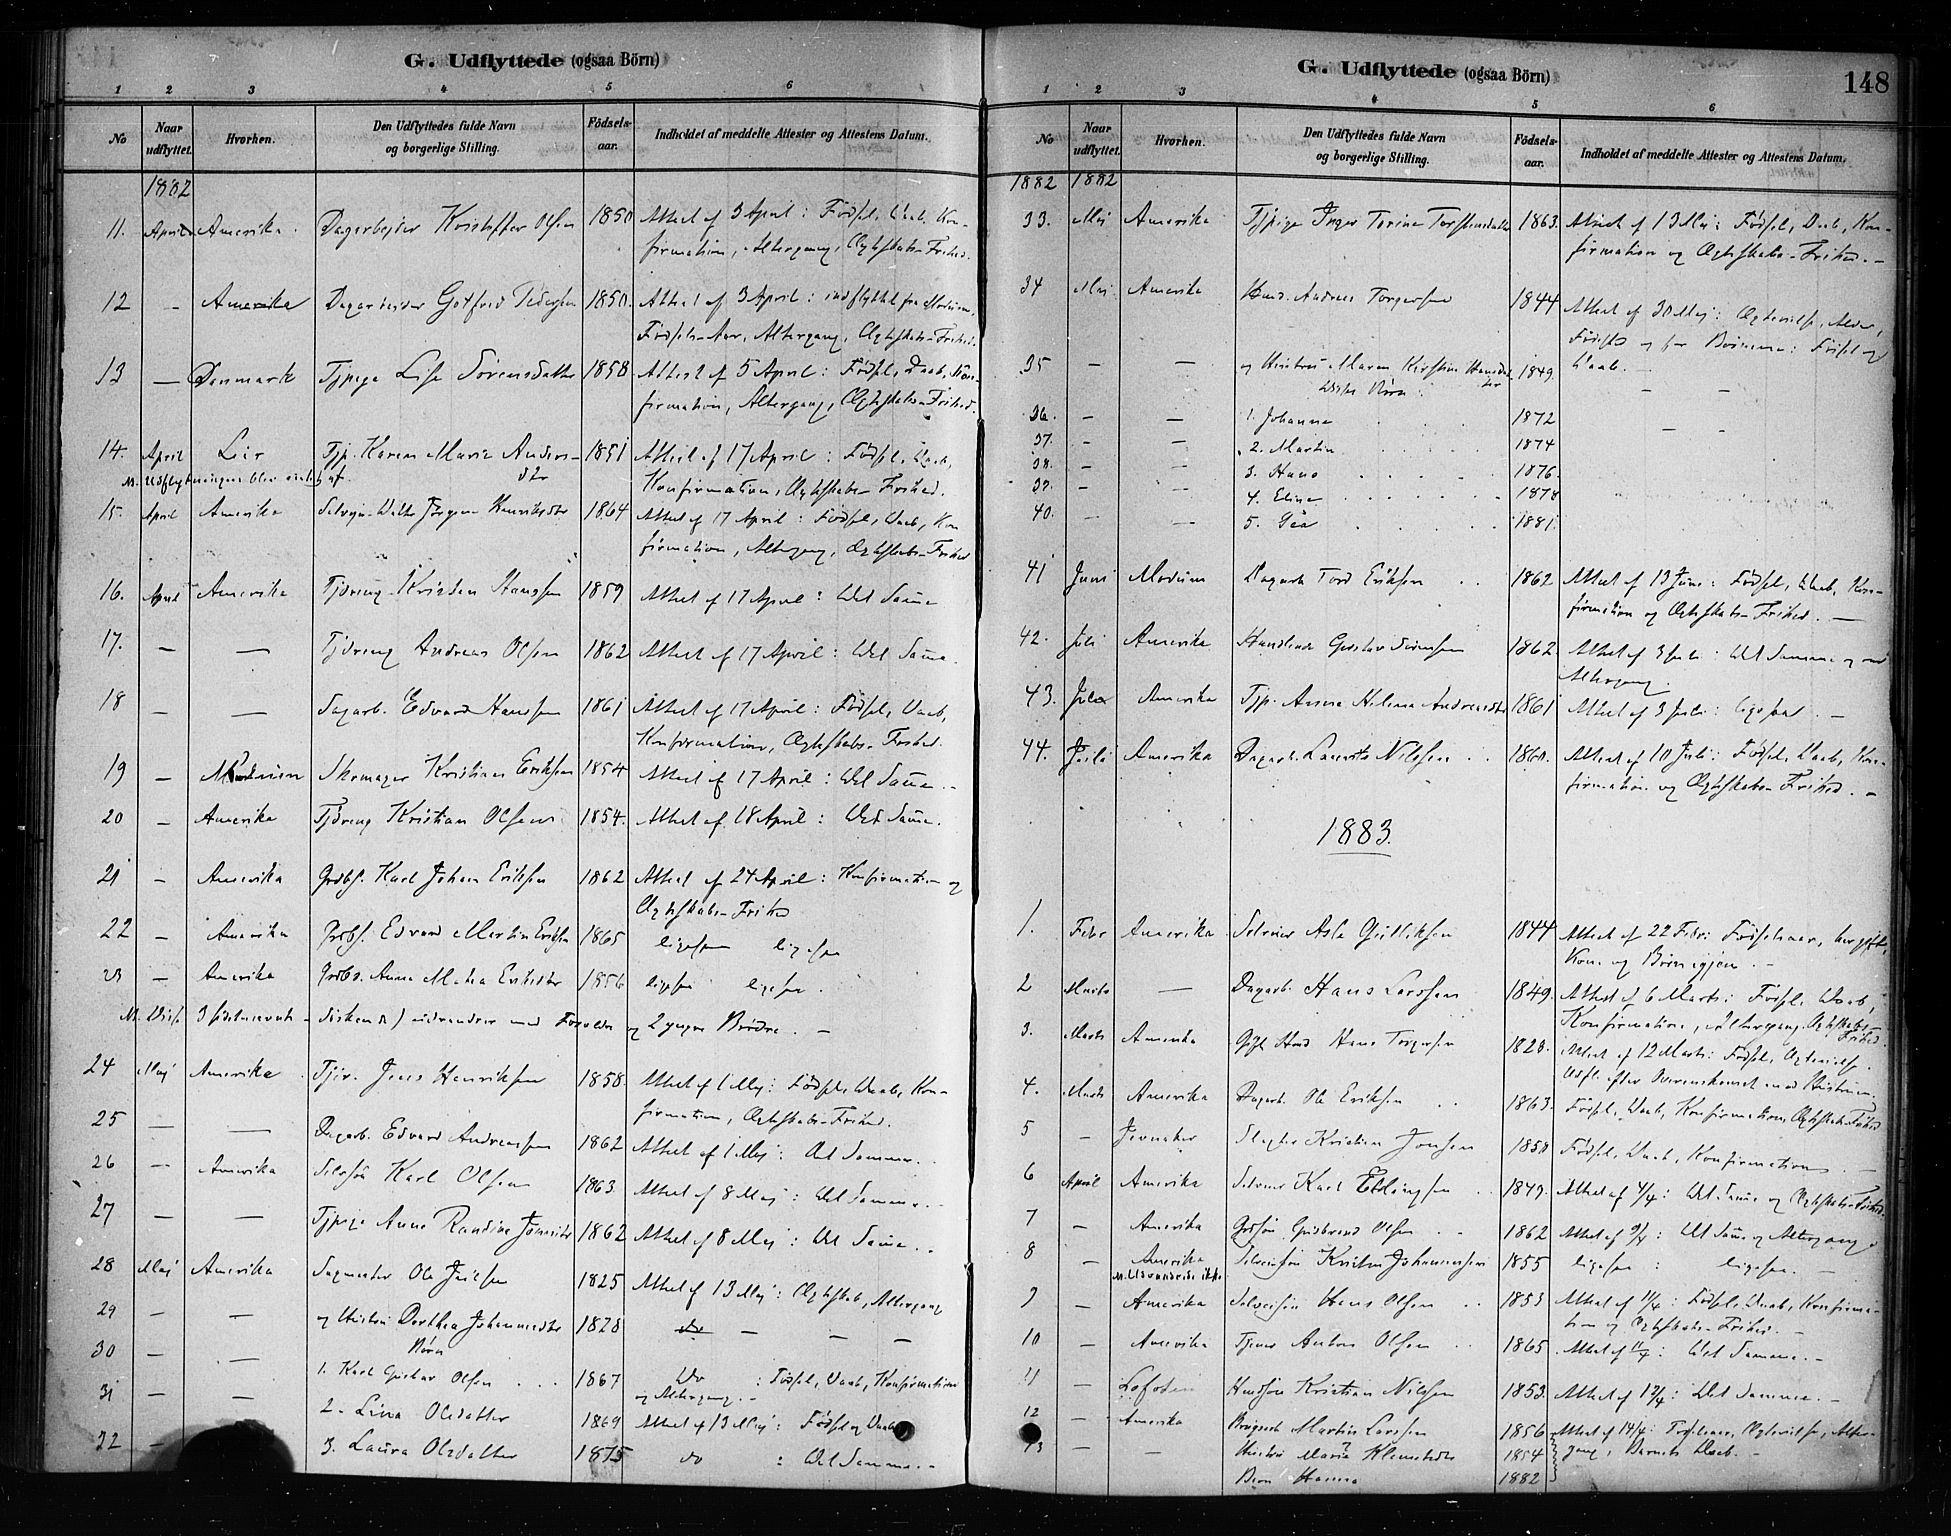 G. Udflyttede (ogsaa Börn)
1 2 3 4 5 6
No Naar udflyttet. Hvorhen. Den Udflyttedes fulde Navn og borgerlige Stilling. Födsels-aar. Indholdet af meddelte Attester og Attestens Datum.
1882
11. April Amerika. Dagarbejder Kristoffer Olsen 1850 Attest af 3 April: Födsel, Daab, Kon-
firmation, Altergang, Ægteskabs-Frihed.
12 - Amerika Dagarbejder Gotfred Pedersen 1850. Attest af 3 April: indflyttet fra Modum,
Födsels-Aar, Altergang, Ægteskabs-Frihed.
13 — Danmark Tjpige Lise Sörensdatter 1858 Attest af 5 April: Födsel, Daab, Kon-
firmation, Altergang, Ægteskabs-Frihed.
14. April Lier Tjp. Karen Marie Anders- 1851 Attest af 17 April: Födsel, Daab,
dtr Konfirmation, Ægteskabs-Frihed.
15. April Amerika Jörgen Henriksen 1864 Attest af 17 April: Födsel, Daab, Kon
firmation, Altergang, Ægteskabs-Frihed
16. April Amerika Tjdreng Kristen Hansen 1859 Attest af 17 April: Det Samme
17. — — Tjdreng Andreas Olsen 1862 Attest af 17 April: Det Samme.
18 — — Dagarb. Edvard Hansen 1861 Attest af 17 April: Födsel, Daab,
Konfirmation, Ægteskabs-Frihed.
19 — Modum Skomager Kristian Eriksen 1854 Attest af 17 April: Det Samme.-
20 — Amerika Tjdreng Kristian Olsen 1854. Attest af 18 April: Det Samme.
21 — Amerika Grdbs. Karl Johan Eriksen 1862 Attest af 24 April: Konfirmation og
Ægteskabs-Frihed
22 — Amerika Grdbs. Edvard Martin Eriksen 1865 ligesaa ligesaa
23 — Amerika Grdbs. Anne Mathea Eriksdtr 1856 ligesaa ligesaa.
M. Disse 3 sidstnævnte Söskende) udvandrer med Forældre og 2 yngre Brödre. —
24 Maj Amerika Tjdr. Jens Henriksen 1858. Attest af 1 Maj: Födsel, Daab, Kon-
firmation, Ægteskabs-Frihed.
25 — — Dagarb. Edvard Andreassen 1862 Attest af 1 Maj: Det Samme.
26 — Amerika Selvsön Karl Olsen 1863. Attest af 8 Maj: Det Samme.
27 — — Tjpige Anne Randine 1862 Attest af 8 Maj: Det Samme..
28 Maj Amerika Ole 1825 Attest af 13 Maj: Ægteskab, Altergang
29 — — og Hustru Dorthea Johannesdtr 1828 do — — —
Börn
30 — — 1. Karl Gustav Olsen ... 1867 Do : Födsel, Daab, Konfirmation
og Altergang.-
31 — — 2. Lina Olsdatter 1869 Attest af 13 Maj: Födsel og Daab
32 — 3. Laura Olsdatter 1875 do : Det Samme.-
G. Udflyttede (ogsaa Börn) 148
1 2 3 4 5 6
No Naar udflyttet. Hvorhen. Den Udflyttedes fulde Navn og borgerlige Stilling. Födsels-aar. Indholdet af meddelte Attester og Attestens Datum.
1882 1882
33. Maj Amerika Tjpige Inger Torine Torstensdatter 1863. Attest af 13 Maj: Födsel, Daab, Kon-
firmation og Ægteskabs-Frihed.-
34 Maj Amerika Husm. Andreas Torgersen 1844 Attest af 30 Maj: Ægtevielse, Alder,
og for Börnene: Födsel og
35 — — og Hustru Maren Kirstine 1849. Daab.-
deres Börn:
36. — — 1. Johanne 1872
37. — — 2. Martin 1874
38. — — 3. Hans 1876.
39. — — 4. Eline 1878
40. — — 5. 1881.
41 Juni Modum Dagarb. Tord Eriksen .. 1862 Attest af 13 Juni: Födsel, Daab, Kon-
firmation og Ægteskabs-Frihed. —
42. Juli Amerika Gustav Sörensen 1862. Attest af 3 Juli: Det Samme og
Altergang.
43. Juli Amerika Tjp. Anna Helene Andreasdtr 1861 Attest af 3 Juli: ligesaa. —
44. Juli Amerika Dagarb. Laurits Nilssen .. 1860. Attest af 10 Juli: Födsel, Daab, Kon-
firmation og Ægteskabs-Frihed. —
1883.
1. Febr Amerika Selveier Asle Gulliksen 1844 Attest af 22 Febr: Födselsaar,
Kone og Börn igjen.-
2 Marts — Dagarb. Hans Larssen 1849. Attest af 6 Marts: Födsel, Daab,
Konfirmation, Altergang, Ægteskabs-
Frihed.
3. Marts Amerika Hans Torgersen 1828. Attest af 12 Marts: Födsel, Ægtevielse.
Udfl. efter Overenskomst med Hustruen.
4. Marts Amerika Dagarb. Ole Eriksen .. 1863. Födsel, Daab, Konfirmation, Ægteskabs-Frihed
5 — Jevnaker Kristian Jonsen 1858 Födsel, Daab, Konfirmation.
6 April Amerika Selveier Karl Ellingsen .. 1849. Attest af 4/4: Det Samme og Ægteskabs-Frihed.
7 — Amerika Grdsön Gudbrand Olsen .. 1862 Attest af 9/4: Det Samme og Altergang.
8 — Amerika Selveiersön Kristen Johannessen 1855 ligesaa: ligesaa. —
M. Udvandrede ikke
9 — Amerika Selveiersön Hans Olsen .. 1853 Attest af 11/4: Födsel, Daab, Konfirma-
tion og Ægteskabs-Frihed.-
10 — Amerika Tjener Anton Olsen .. 1865. Attest af 11/4: Det Samme.-
11 — Lofoten Husmsön Kristian Nilssen 1853. Attest af 12/4: Det Samme.-
12 — Amerika Martin Larssen 1856 Attest af 14/4: Födselsaar, Ægtevielse, Alter-
13 — — Hustru Maria Klemetsdtr 1854 gang, Barnets Daab.-
Barn Hanna 1882